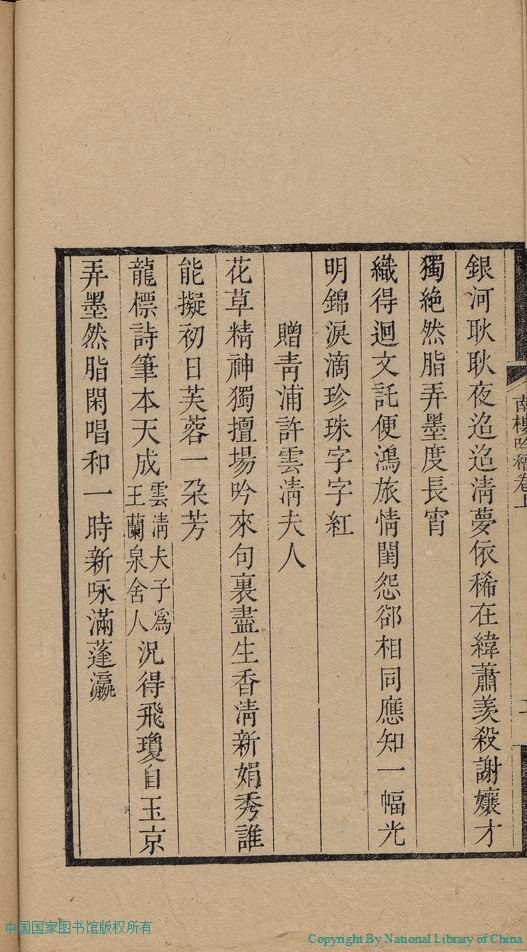 銀河耿耿夜迢迢清夢依稀在緯蕭羨殺謝孃才
獨絶然脂弄墨度長宵
織得迴文託便鴻旅情閨怨卻相同應知一幅光
明錦淚滴珍珠字字紅
贈青浦許雲清夫人
花草精神獨擅場吟來句裏盡生香清新娟秀誰
能擬初日芙蓉一朶芳
龍標詩筆本天成雲清夫子爲王蘭泉舍人況得飛瓊自玉京
弄墨然脂閑唱和一時新咏滿蓬瀛
南樓吟稿卷上
中国国家图书馆版权所有
Copyright By National Library of China